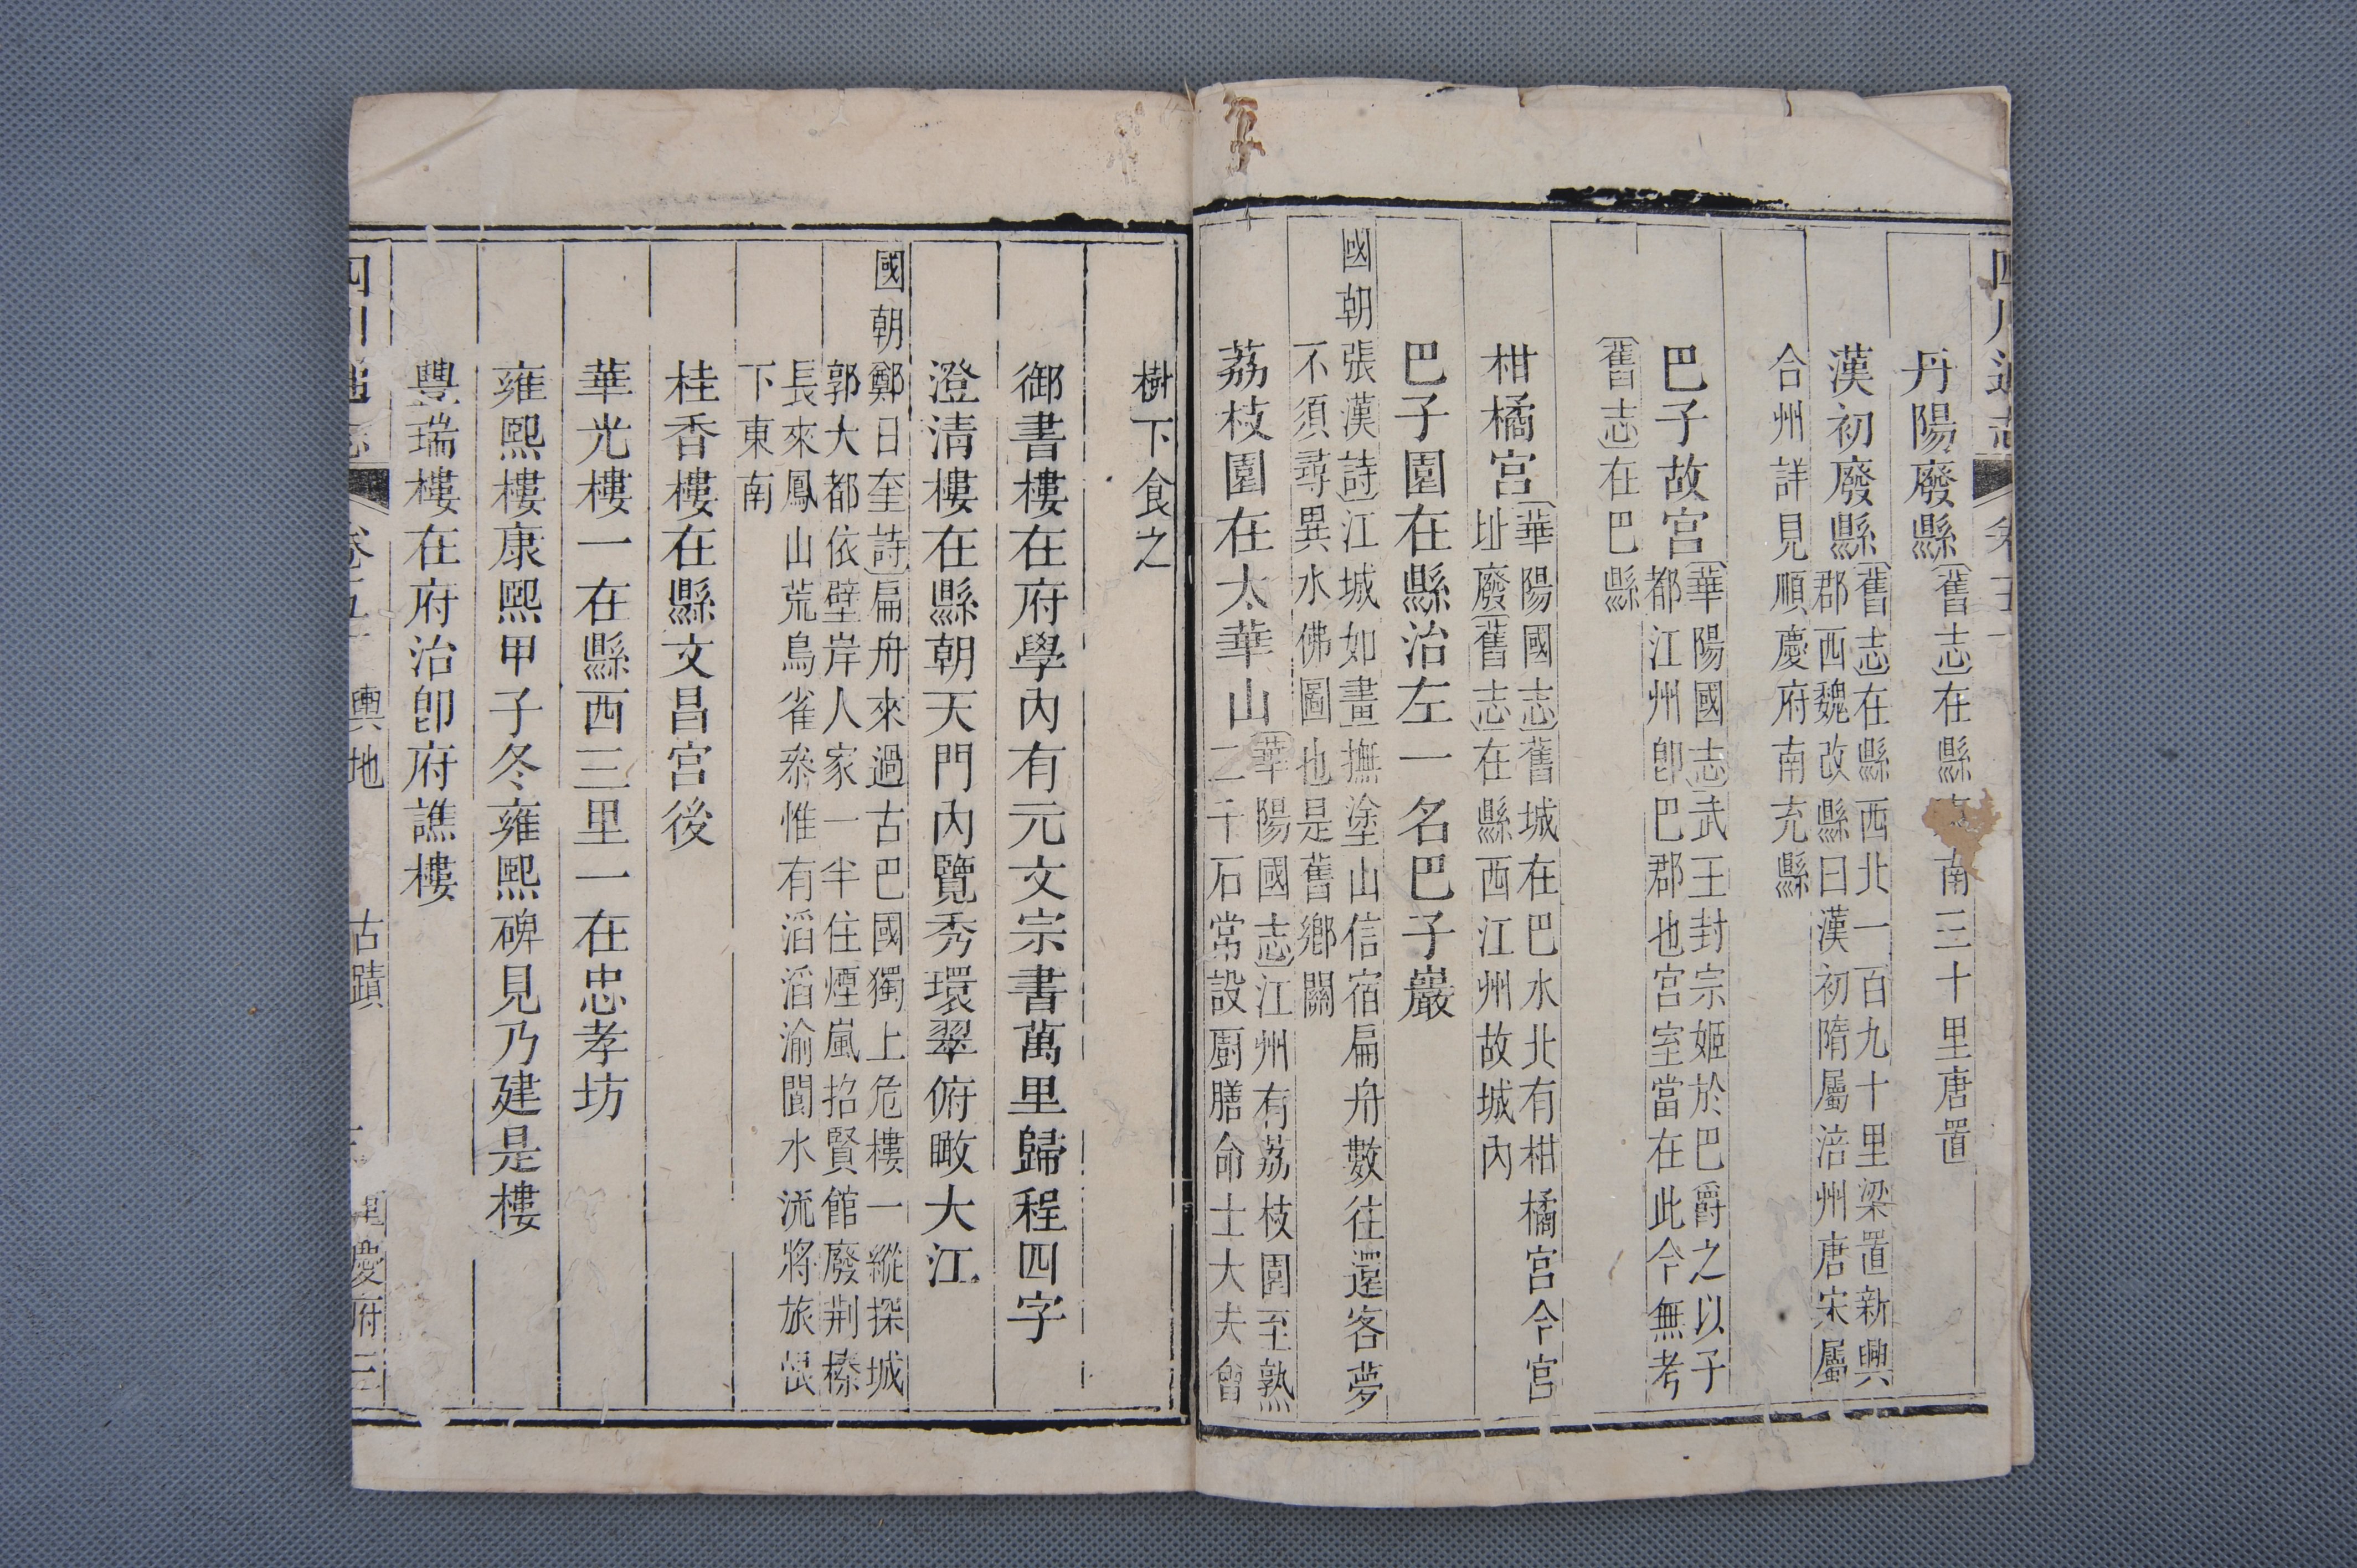 四川通志
丹陽廢縣〔舊志〕在縣南三十里唐置
漢初廢縣〔舊志〕在縣西北一百九十里梁置新興
郡西魏改縣曰漢初隋屬涪州唐宋屬
合州詳見順慶府南充縣
巴子故宮〔華陽國志〕武王封宗姬於巴爵之以子
都江州卽巴郡也宮室當在此今無考
〔舊志〕在巴縣
柑橘宮〔華陽國志〕舊城在巴水北有柑橘宮今宮
址廢〔舊志〕在縣西江州故城內
巴子園在縣治左一名巴子巖
國朝張漢詩〕江城如畫撫塗山信宿扁舟數往還客夢
不須尋異水佛圖也是舊鄉關
荔枝園在太華山〔華陽國志〕江州有荔枝園至熟
二千石常設廚膳命士大夫會
樹下食之
御書樓在府學內有元文宗書萬里歸程四字
澄清樓在縣朝天門內覽秀環翠俯瞰大江
國朝鄭日奎詩〕扁舟來過古巴國獨上危樓一縱探城
郭大都依壁岸人家一半住煙嵐招賢館廢荆榛
長來鳳山荒鳥雀叅惟有滔滔渝閬水流將旅恨
下東南
桂香樓在縣文昌宮後
華光樓一在縣西三里一在忠孝坊
雍熙樓康熙甲子冬雍熙碑見乃建是樓
豐瑞樓在府治卽府譙樓
四川通志 卷五 輿地 古蹟 重慶府三